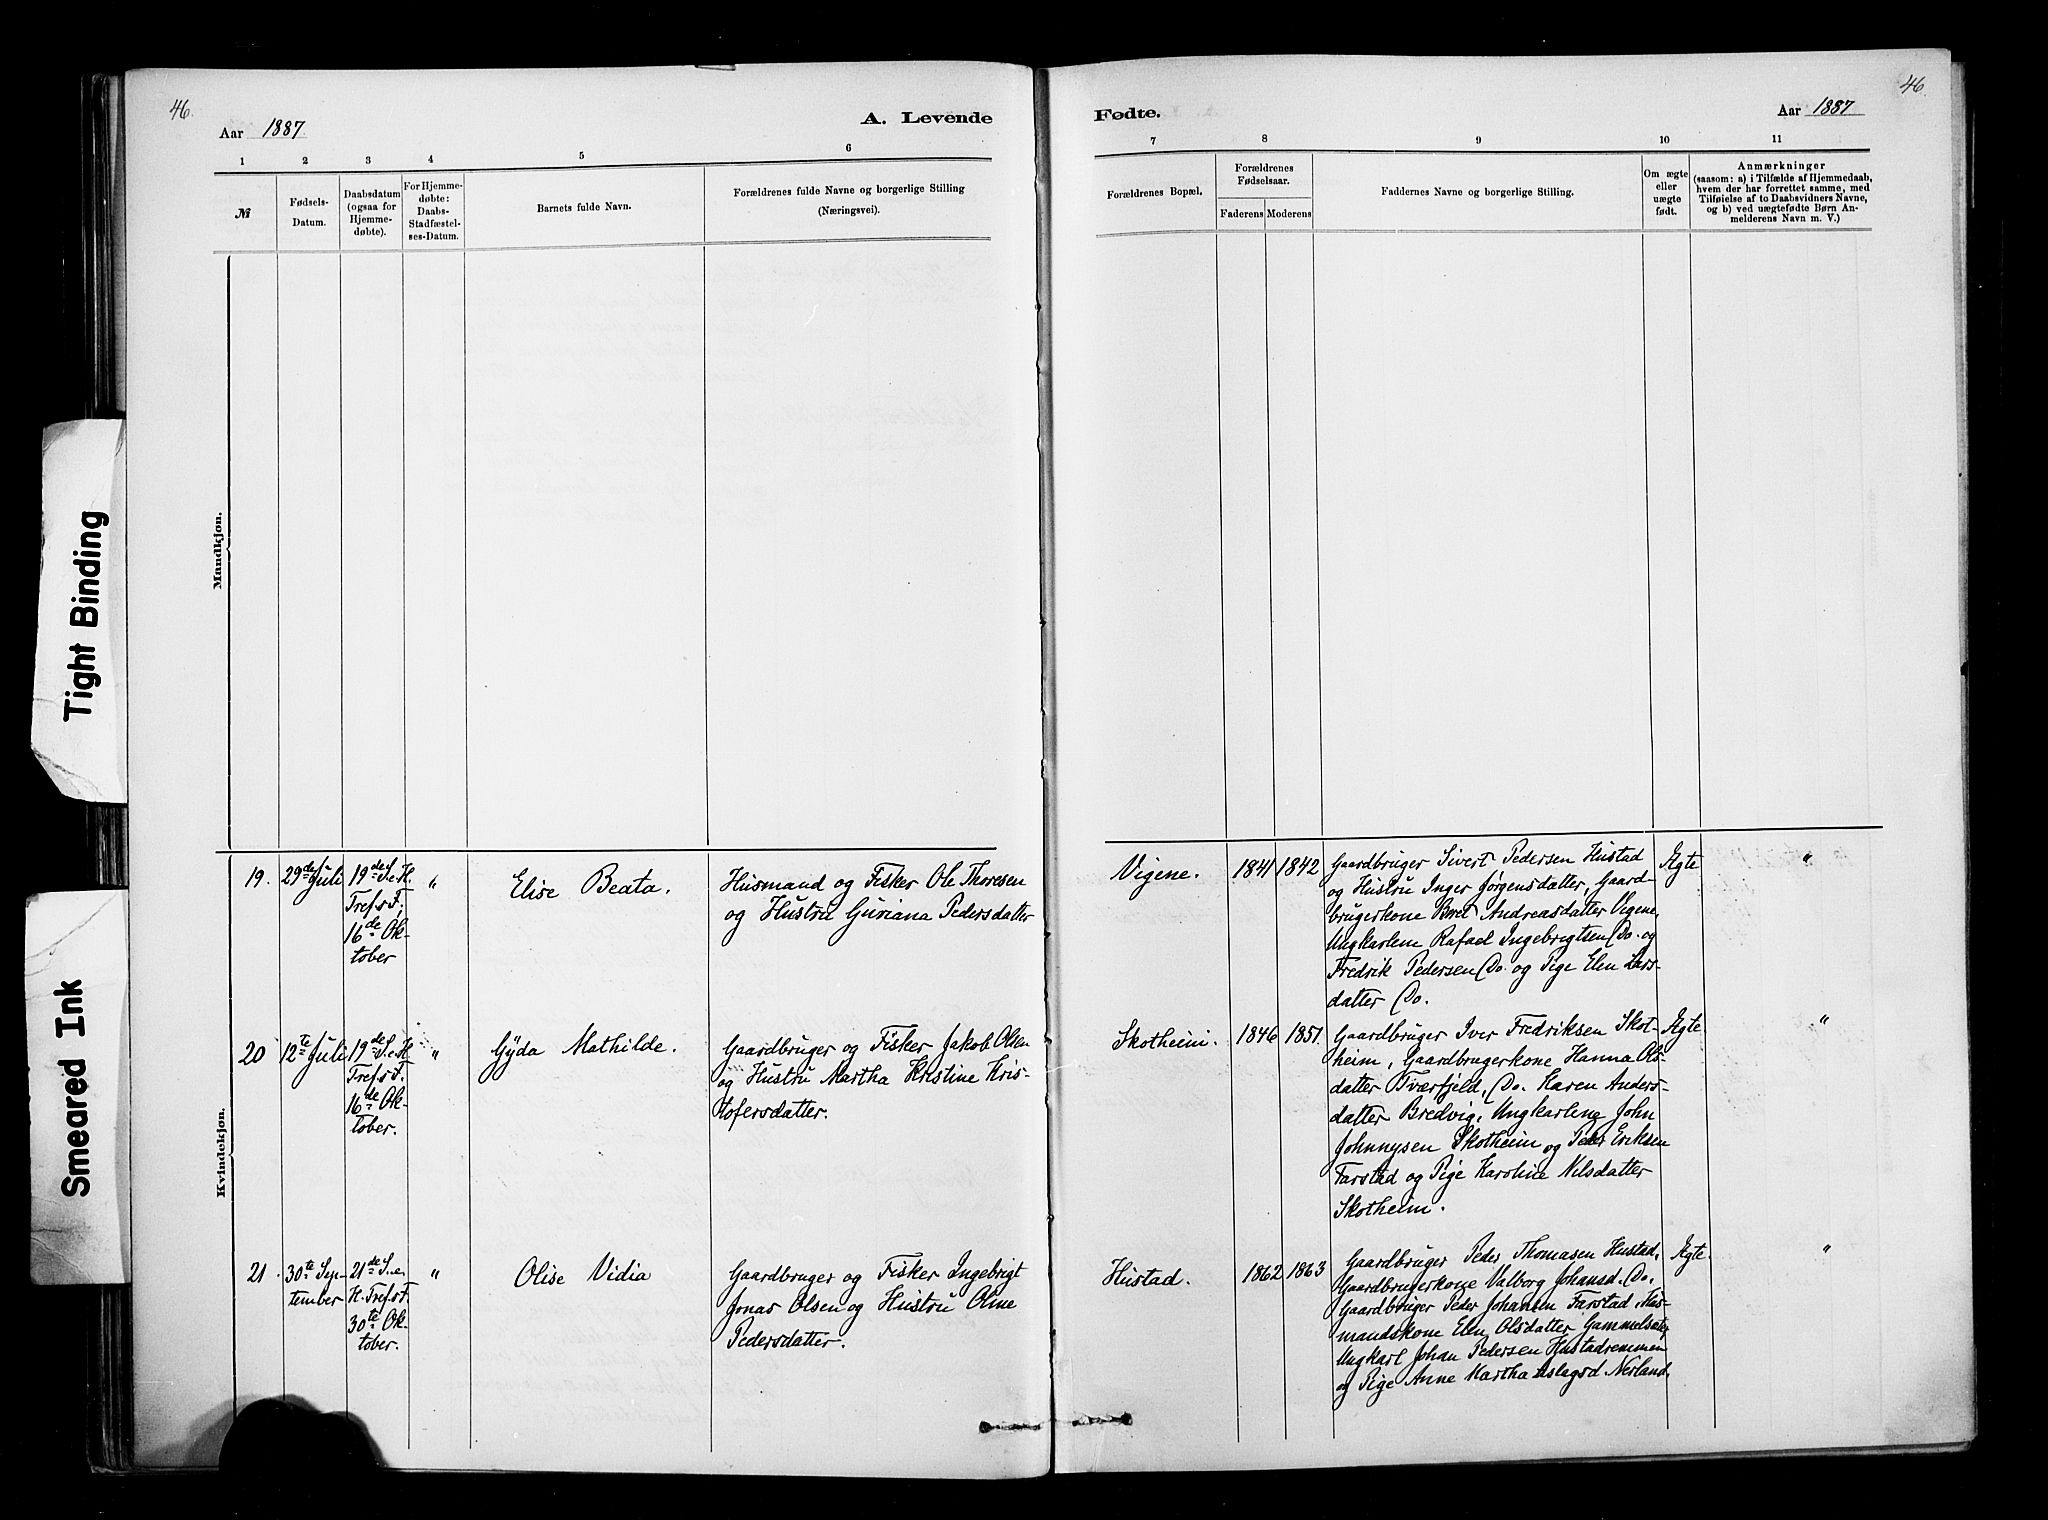 46.
46.
Aar 1887
A. Levende
Fødte.
Aar 1887
1
2
3
4
5
6
7
8
9
10
11
№
Fødsels-
Datum.
Daabsdatum
(ogsaa for
Hjemme-
døbte).
For Hjemme-
døbte:
Daabs-
Stadfæstel-
ses-Datum.
Barnets fulde Navn.
Forældrenes fulde Navne og borgerlige Stilling
(Næringsvei).
Forældrenes Bopæl.
Forældrenes
Fødselsaar.
Faderens
Moderens
Faddernes Navne og borgerlige Stilling.
Om ægte
eller
uægte
født.
Anmærkninger
(saasom: a) i Tilfælde af Hjemmedaab,
hvem der har forrettet samme, med
Tilføielse af to Daabsvidners Navne,
og b) ved uægtefødte Børn An-
melderens Navn m. V.)
Mandkjøn.
Tight Binding
Smeared Ink
Kvindekjøn.
19.
29de Juli
19de S. e. H.
Tref. s F.
16de Ok-
tober
"
Elise Beata.
Husmand og Fisker Ole Thoresen
og Hustru Guriana Pedersdatter
Vigene.
1841
1842
Gaardbruger Sivert Pedersen Hustad
og Hustru Inger Jørgensdatter, Gaard-
brugerkone Beret Andreasdatter Vigene,
Ungkarlene Rafael Ingebrigtsen Do. og
Fredrik Pedersen Do. og Pige Elen Lars-
datter Do.
Ægte
"
20
12te Juli
19de S. e. H
Tref. s F.
16de Ok-
tober.
"
Gyda Mathilde.
Gaardbruger og Fisker Jakob Olsen
og Hustru Martha Kristine Kris-
tofersdatter.
Skotheim.
1846
1851
Gaardbruger Iver Fredriksen Skot-
heim, Gaardbrugerkone Hanna Ols-
datter Tværfjeld, Do. Karen Anders-
datter Bredvig, Ungkarlene John
Johnnysen Skotheim og Peder Eriksen
Farstad og Pige Karoline Nilsdatter
Skotheim.
Ægte
"
21
30te Sep-
tember
21de S. e.
H. Tref. s F.
30te Ok-
tober.
"
Olise Vidia
Gaardbruger og Fisker Ingebrigt
Jonas Olsen og Hustru Oline
Pedersdatter.
Hustad.
1862
1863
Gaardbruger Peder Thomasen Hustad,
Gaardbrugerkone Valborg Johansd. Do.,
Gaardbruger Peder Johansen Farstad, Hus-
mandskone Elen Olsdatter Gammelsæter,
Ungkarl Johan Pedersen Hustadremmen
og Pige Anne Martha Aslagsd Nerland.
Ægte.
"